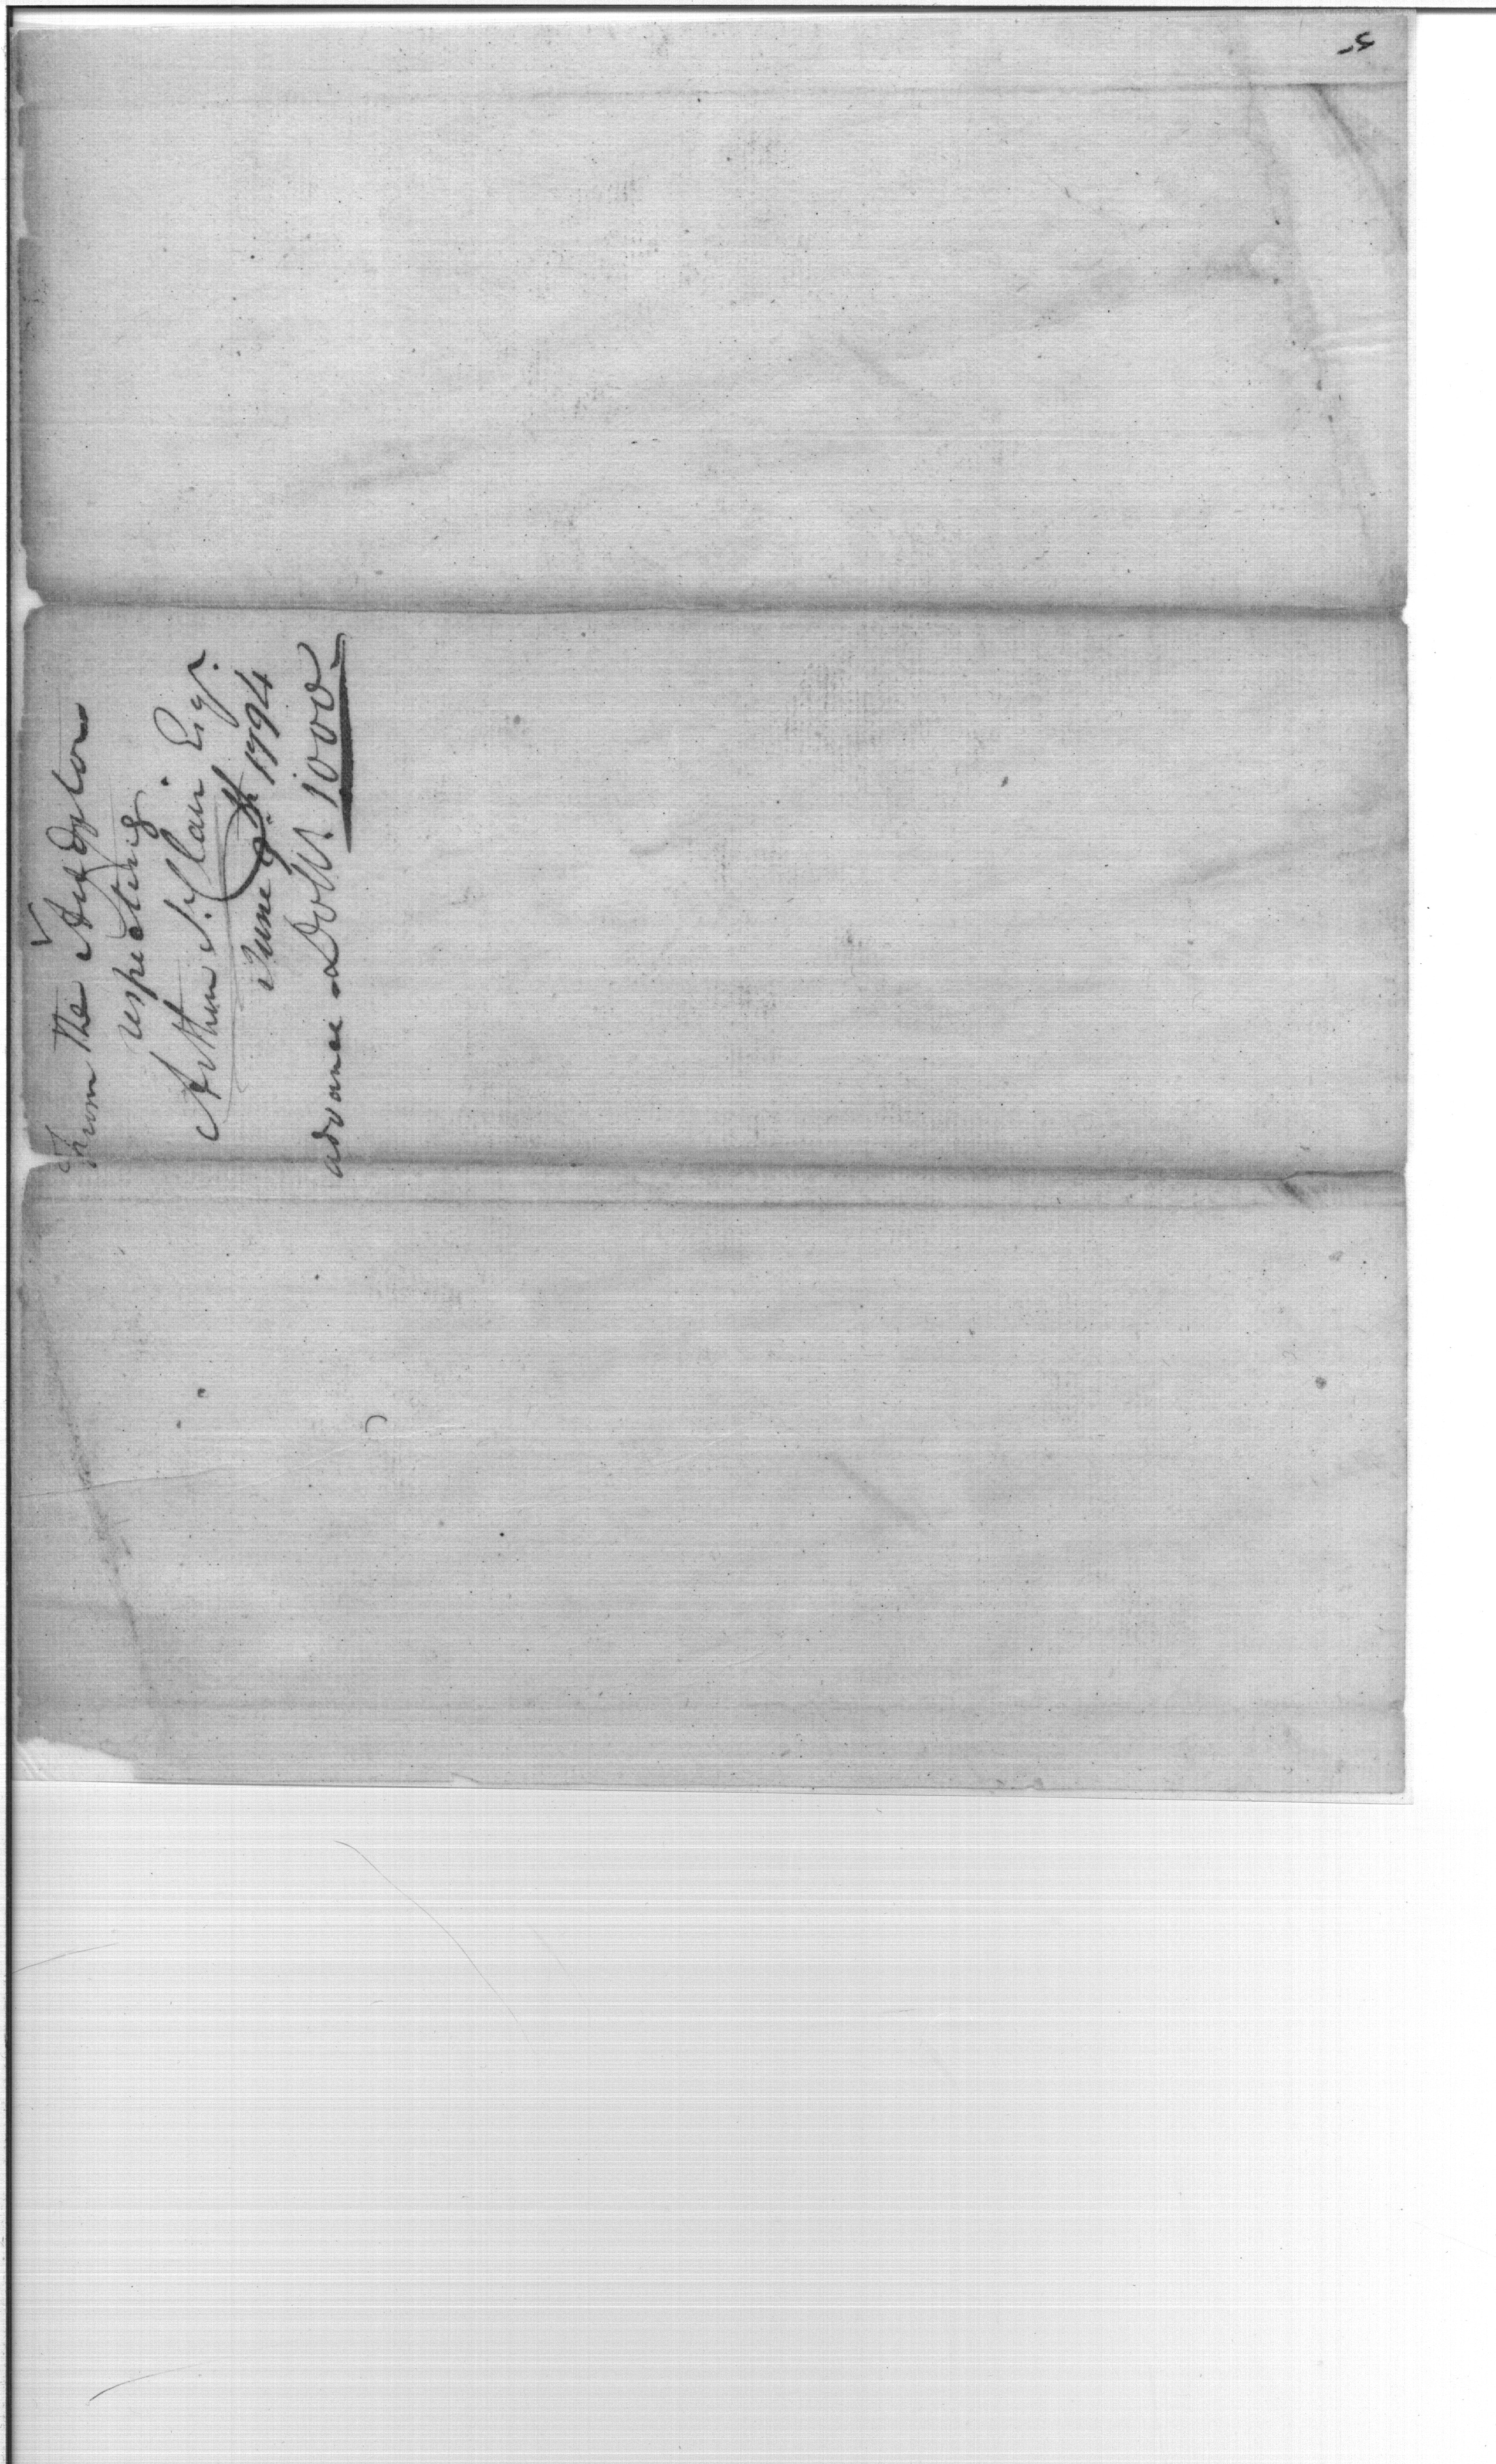 From the Auditor
respecting
Arthur St. Clair Esqr.
June 9th 1794
advance Dolls. 1000